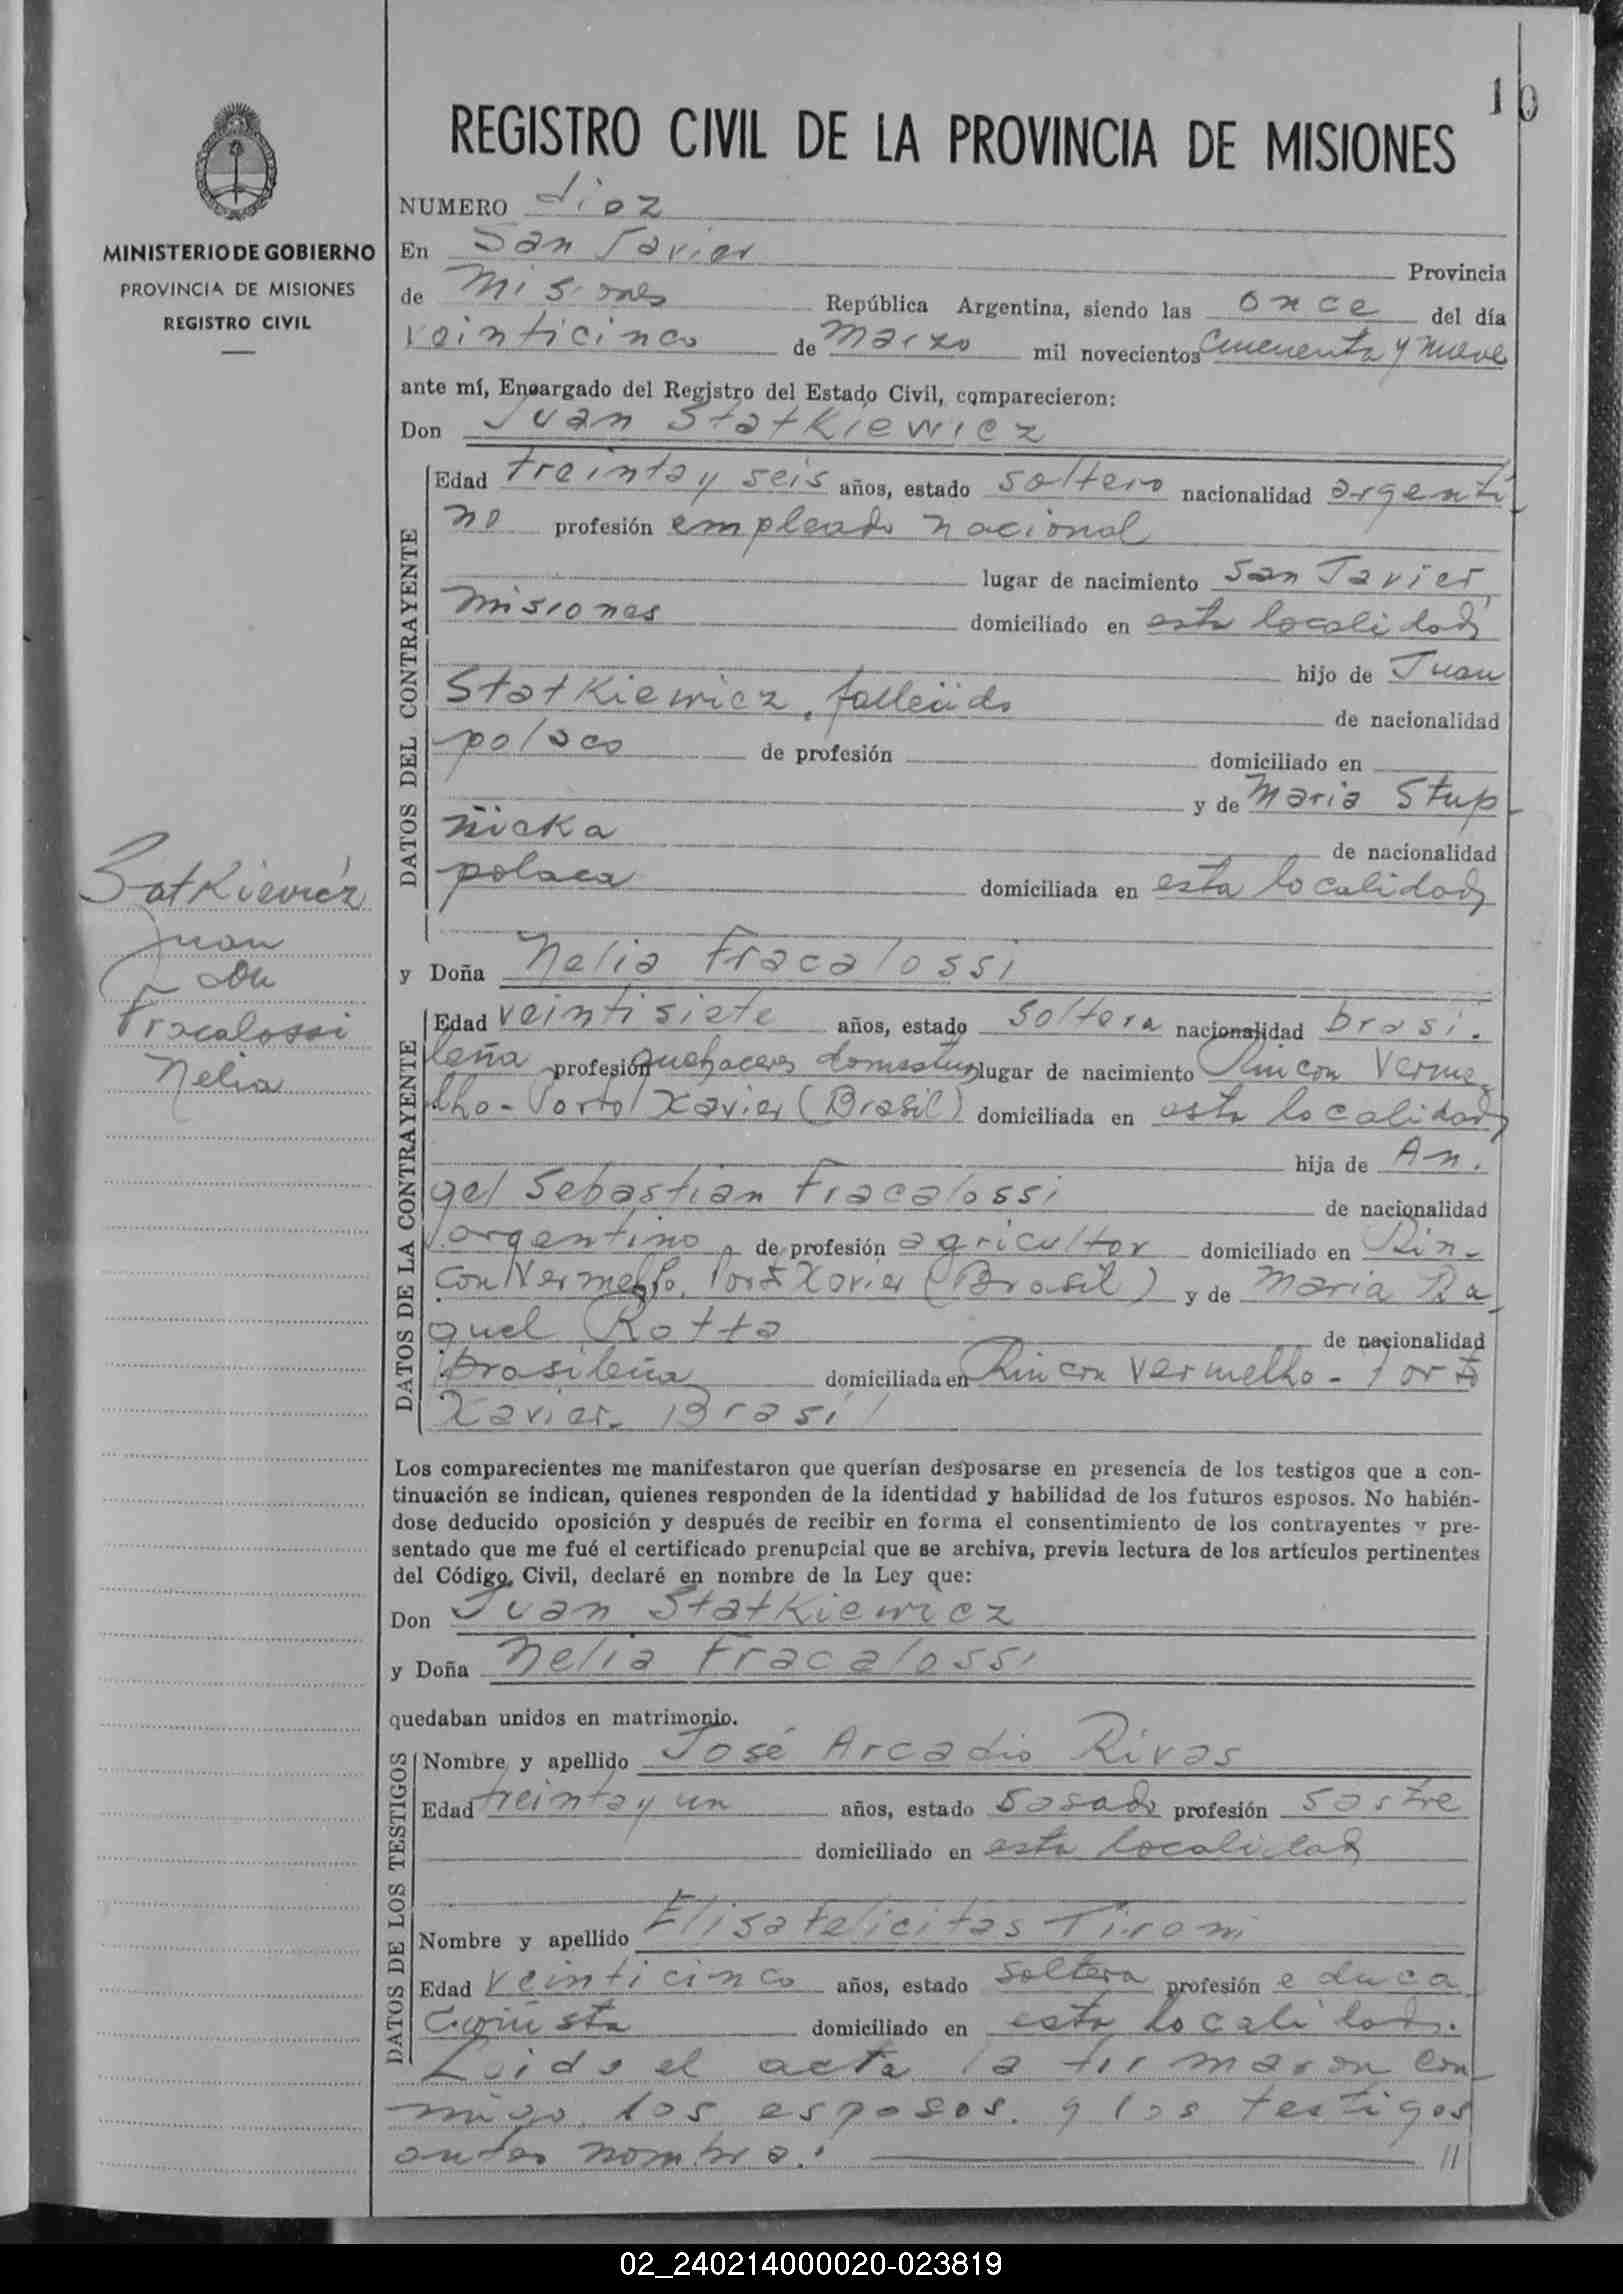 10
REGISTRO CIVIL DE LA PROVINCIA DE MISIONES
MINISTERIO DE GOBIERNO
PROVINCIA DE MISIONES
REGISTRO CIVIL
NUMERO diez
En San Javier Provincia
de Misiones República Argentina, siendo las once del día
veinticinco de Marzo mil novecientos cincuenta y nueve
ante mí, Encargado del Registro del Estado Civil, comparecieron:
Don Juan Statkiewicz
DATOS DEL CONTRAYENTE
Edad treinta y seis años, estado soltero nacionalidad argenti-
no profesión empleado nacional
lugar de nacimiento San Javier,
Misiones domiciliado en esta localidad,
hijo de Juan
Statkiewicz, fallecido de nacionalidad
polaco de profesión domiciliado en
y de Maria Stup-
ñicka de nacionalidad
polaca domiciliada en esta localidad,
Satkievicz
Juan
con
Fracalossi
Nelia
y Doña Nelia Fracalossi
DATOS DE LA CONTRAYENTE
Edad veintisiete años, estado soltera nacionalidad brasi-
leña profesión quehaceres domesticos lugar de nacimiento Rincon Verme-
lho - Porto Xavier (Brasil) domiciliada en esta localidad,
hija de An-
gel Sebastian Fracalossi de nacionalidad
argentino de profesión agricultor domiciliado en Rin-
con Vermelho, Porto Xavier (Brasil) y de Maria Ra-
quel Rotta de nacionalidad
brasileña domiciliada en Rincon Vermelho - Porto
Xavier - Brasil
Los comparecientes me manifestaron que querían desposarse en presencia de los testigos que a con-
tinuación se indican, quienes responden de la identidad y habilidad de los futuros esposos. No habién-
dose deducido oposición y después de recibir en forma el consentimiento de los contrayentes y pre-
sentado que me fué el certificado prenupcial que se archiva, previa lectura de los artículos pertinentes
del Código Civil, declaré en nombre de la Ley que:
Don Juan Statkiewicz
y Doña Nelia Fracalossi
quedaban unidos en matrimonio.
DATOS DE LOS TESTIGOS
Nombre y apellido José Arcadio Rivas
Edad treinta y un años, estado casado profesión sastre
domiciliado en esta localidad
Nombre y apellido Elisa Felicitas Tironi
Edad veinticinco años, estado soltera profesión educa
cionista domiciliado en esta localidad.
Leida el acta la firmaron con-
migo los esposos y los testigos
antes nombra: //
02_240214000020-023819